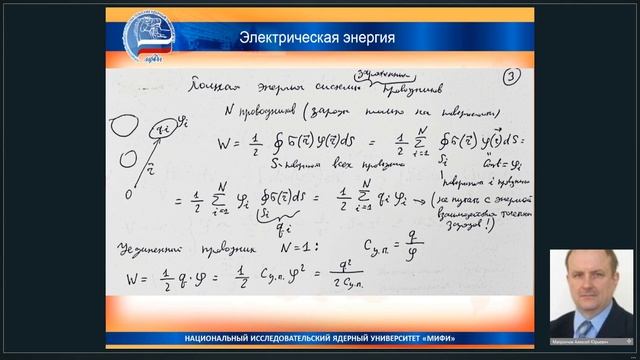 Электрическая энергия
Полная энергия системы заряженных проводников
3
N проводников (заряд только на поверхности)
W = 1/2 ∮ σ(r⃗)φ(r⃗)dS = 1/2 Σ_{i=1}^{N} ∮_{S_i} σ(r⃗) φ(r⃗)dS =
S-поверхн всех проводн
const = φi
поверхность i проводн
qi φi
r⃗
0
= 1/2 Σ_{i=1}^{N} φi ∮_{S_i} σ(r⃗)dS = 1/2 Σ_{i=1}^{N} qi φi → (не путать с энергией взаимодейств точечных зарядов!)
qi
Уединенный проводник N=1: Cу.п. = q/φ
W = 1/2 q·φ = 1/2 Cу.п. φ² = q²/2Cу.п.
НАЦИОНАЛЬНЫЙ ИССЛЕДОВАТЕЛЬСКИЙ ЯДЕРНЫЙ УНИВЕРСИТЕТ «МИФИ»
Алексей Юрьевич